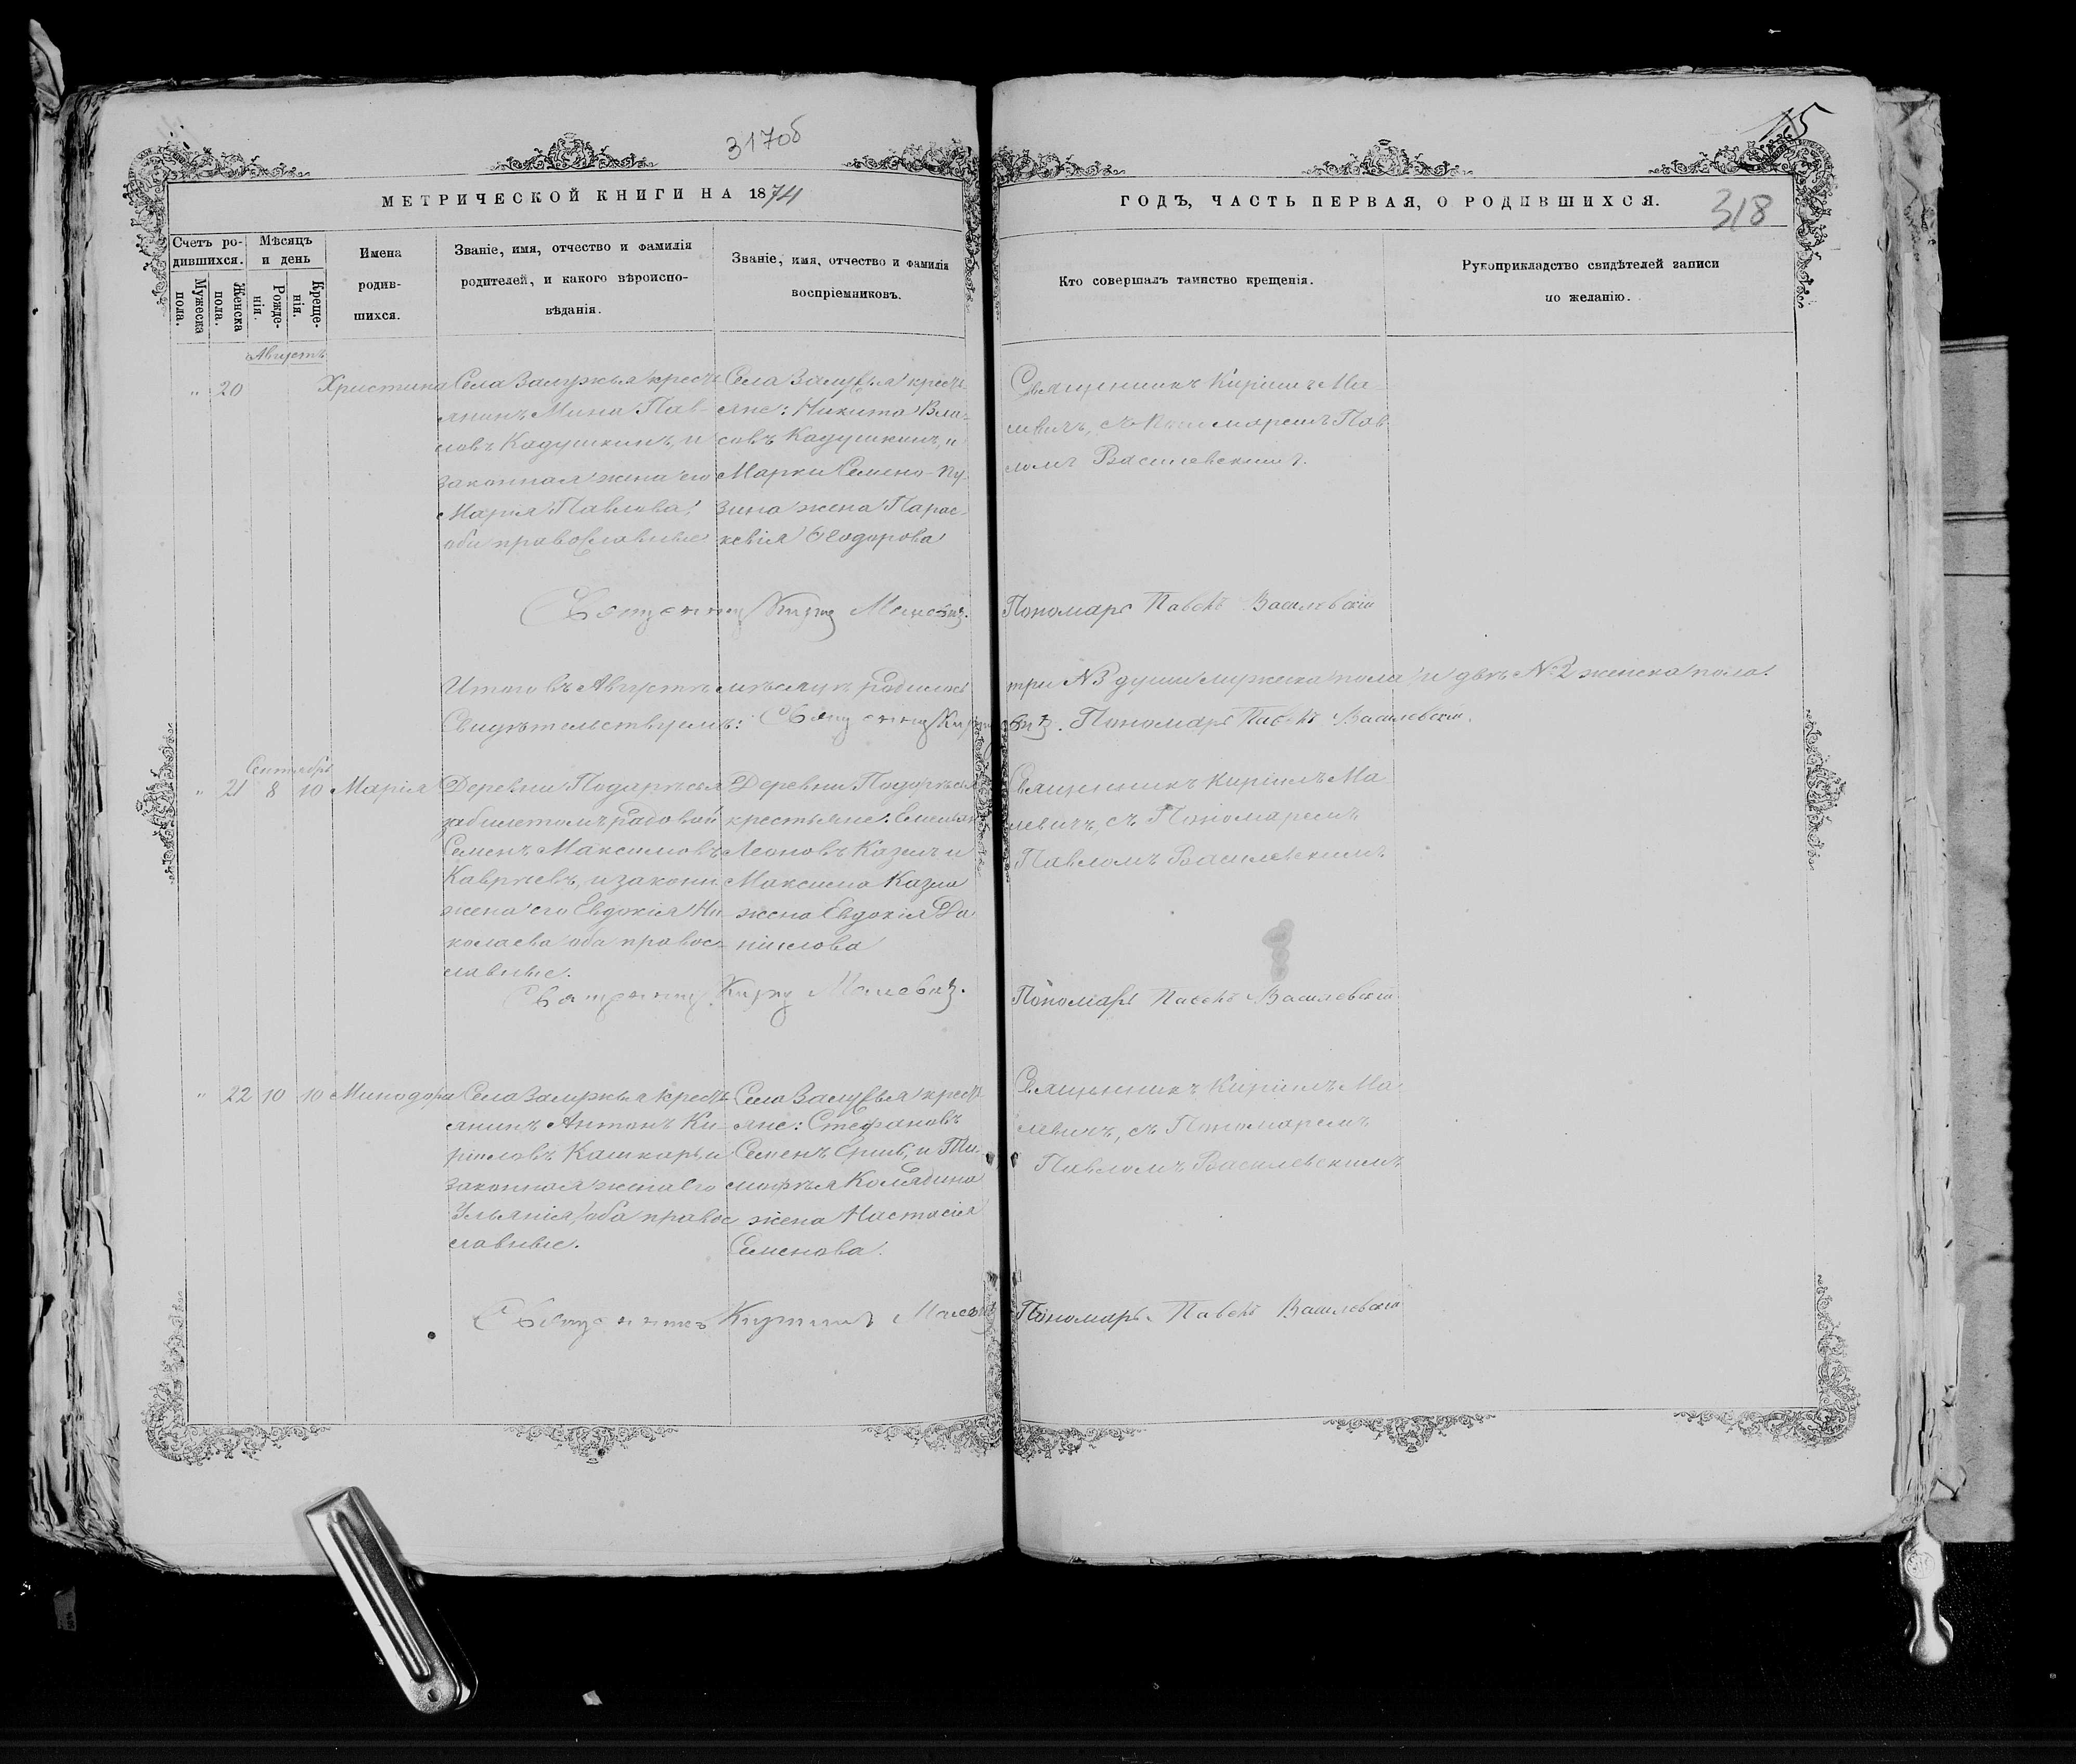 317об
15
МЕТРИЧЕСКОЙ КНИГИ НА 1874
ГОДЪ, ЧАСТЬ ПЕРВАЯ, О РОДИВШИХСЯ.
318
Счетъ ро-
дившихся.
Мужеска
пола.
Женска
пола.
Мѣсяцъ
и день
Рожде-
нія.
Креще-
нія.
Имена
родив-
шихся.
Званіе, имя, отчество и фамилія
родителей, и какого вѣроиспо-
вѣданія.
Званіе, имя, отчество и фамилія
воспріемниковъ.
Кто совершалъ таинство крещенія.
Рукоприкладство свидѣтелей записи
по желанію.
Августъ
" 20
Христина
Села Залужья кресть
янинъ Мина Пав-
ловъ Кадушкинъ, и
законная жена его
Марія Павлова,
оба православные
Села Залужья кресть
яне: Никита Вла-
совъ Кадушкинъ, и
Марки Семено-
жена Парас-
кевія Ѳеодорова
Священникъ Кириллъ Ма-
левичъ, съ Пономаремъ Пав
ломъ Василевскимъ.
Пономарь Павелъ Василевскій
Итого въ Августѣ мѣсяцѣ родилось
три №3 души мужеска пола и двѣ №2 женска пола.
Свидѣтельствуемъ:
Пономарь Павелъ Василевскій.
Сентябрь
" 21 8 10 Марія
Деревни Подарѣсья
за билетомъ рядовой
Семенъ Максимовъ
и законн
жена его Евдокія Ни-
колаева оба правос-
лавные.
Деревни Подарѣсья
крестьяне: Емельян
Леоновъ Казелъ и
Максима Казла
жена Евдокія Да
нилова
Священникъ Кириллъ Ма
левичъ, съ Пономаремъ
Павломъ Василевскимъ
Пономарь Павелъ Василевскій
" 22 10 10 Минодора
Села Залужья кресть
янинъ Антонъ Ки-
риловъ Кашкаръ, и
законная жена его
Ульянія, оба правос
лавные.
Села Залужья кресть
яне: Стефановъ
Семенъ и Ти-
мофѣя Колядина
жена Настасія
Семенова.
Священникъ Кириллъ Ма-
левичъ, съ Пономаремъ
Павломъ Василевскимъ
Пономарь Павелъ Василевскій